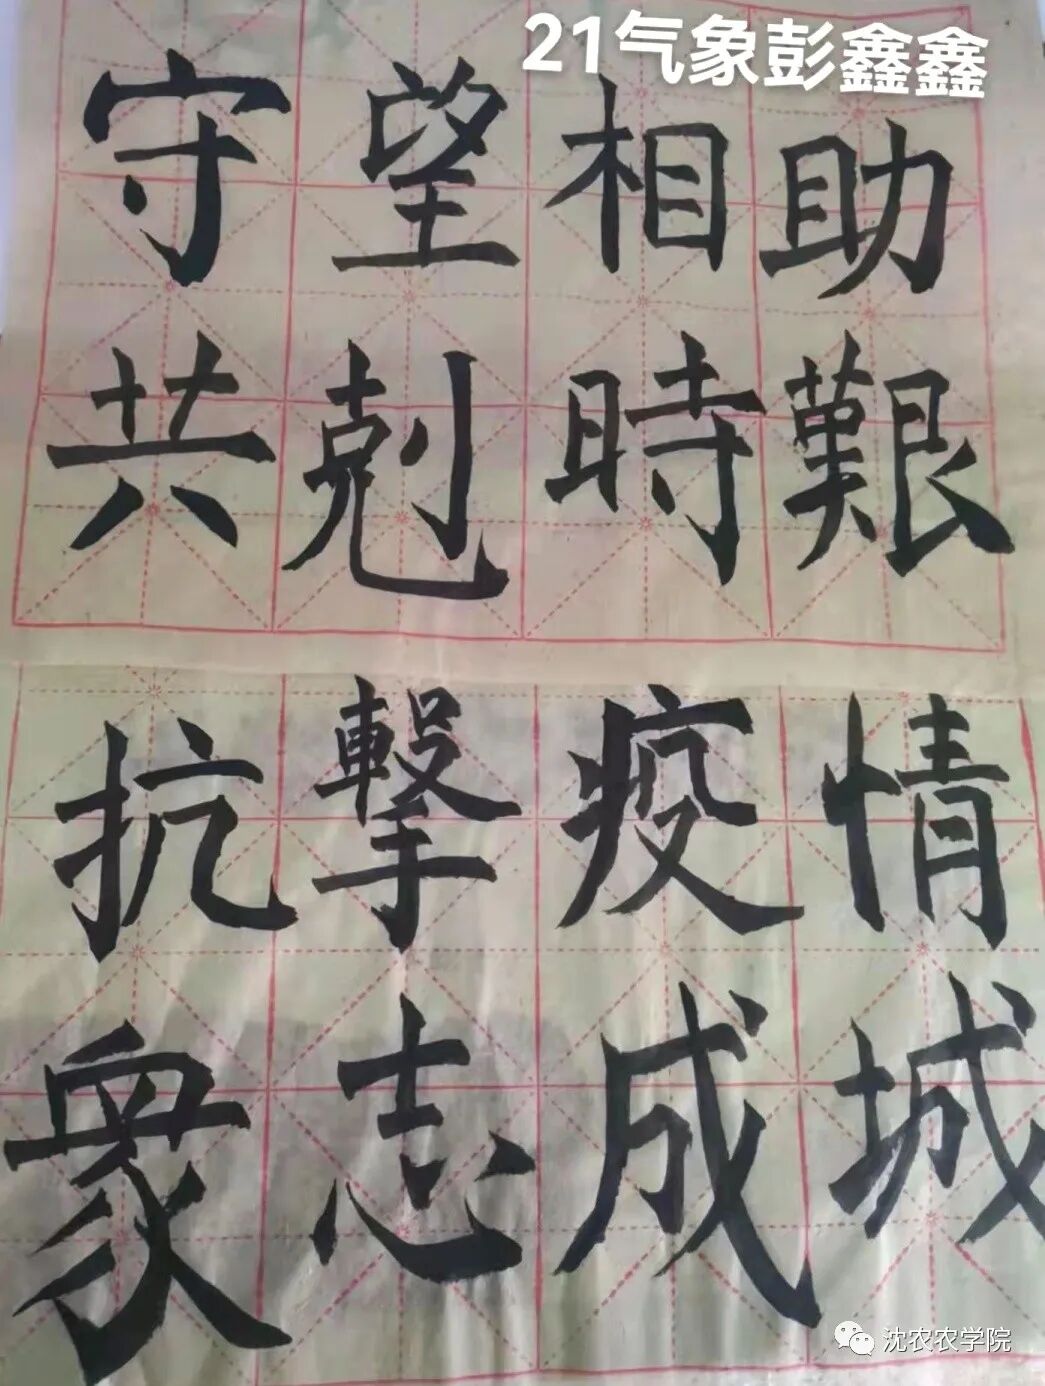 21气象彭鑫鑫
守望相助
共剋時艱
抗擊疫情
衆志成城
沈农农学院